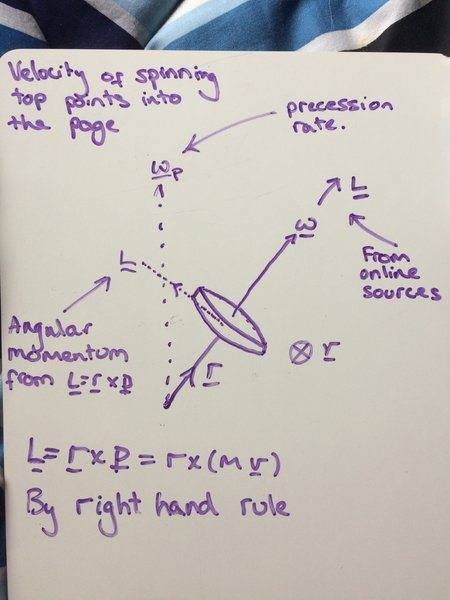 Velocity of spinning
top points into
the page
precession
rate.
ωp
L
ω
L
From
online
sources
Angular
momentum
from L=r×p
r
⊗ v
L=r×p=r×(mv)
By right hand rule